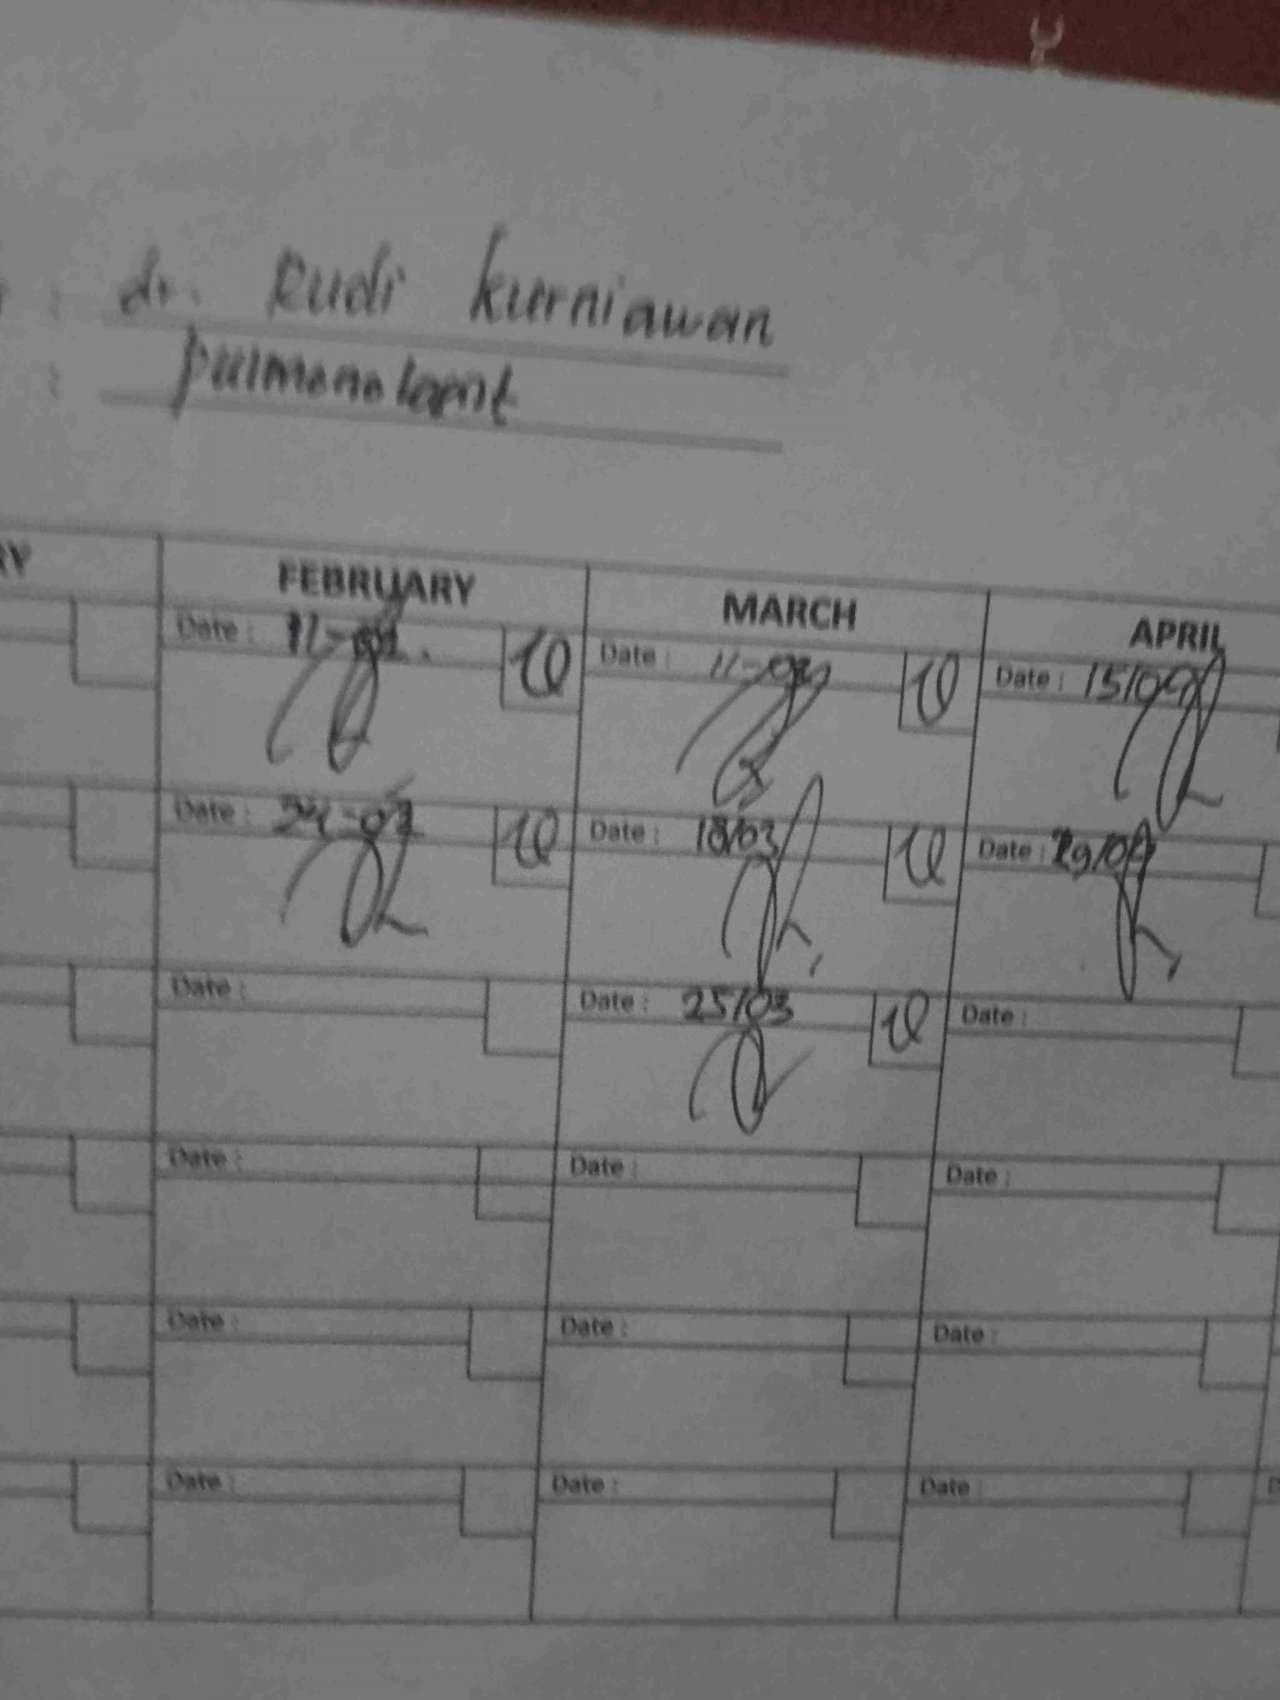 : dr. Rudi kurniawan
: pulmonologist
RY FEBRUARY MARCH APRIL
Date : 11-02. Date : 11-03 Date : 15/04
Date : 24-02 Date : 18/03 Date : 29/04
Date : Date : 25/03 Date :
Date : Date : Date :
Date : Date : Date :
Date : Date : Date :